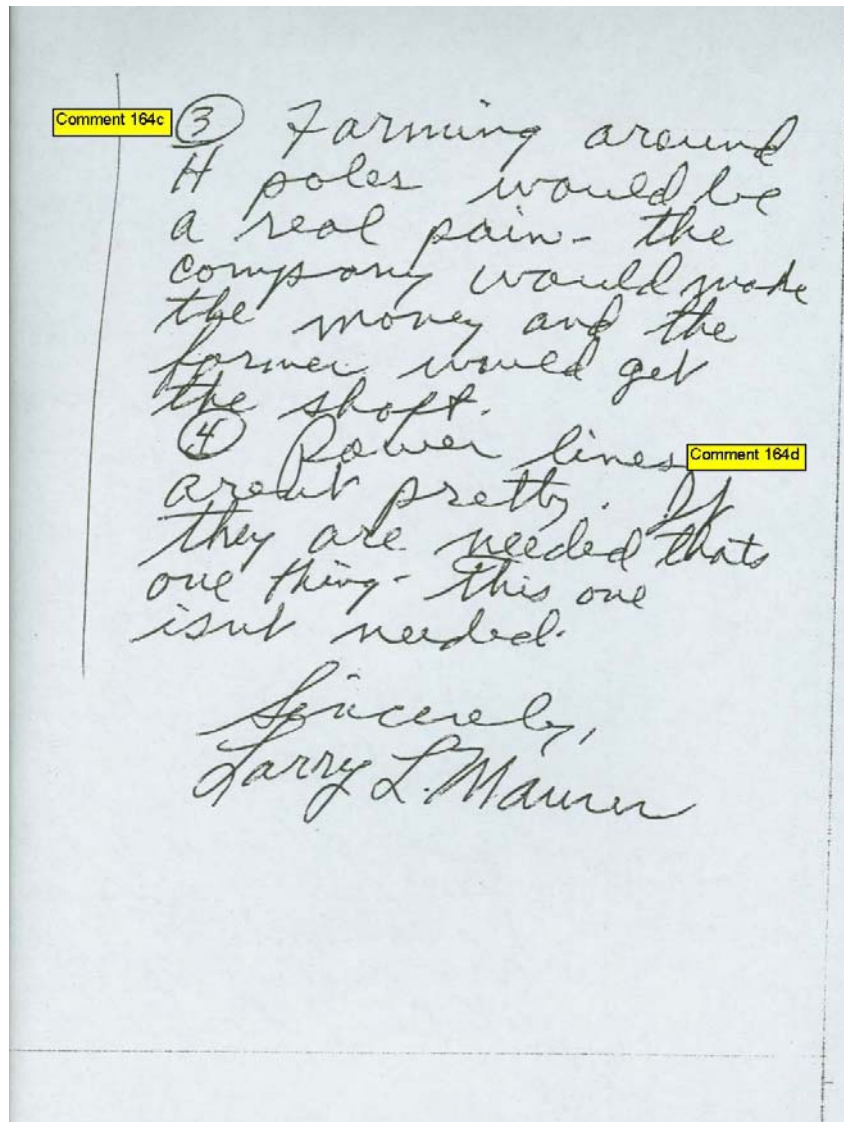 Comment 164c
③ Farming around
H poles would be
a real pain- the
company would make
the money and the
farmer would get
the shaft.
④ Power lines
Comment 164d
arent pretty. If
they are needed thats
one thing- this one
isnt needed.
Sincerely,
Larry L. Maurer